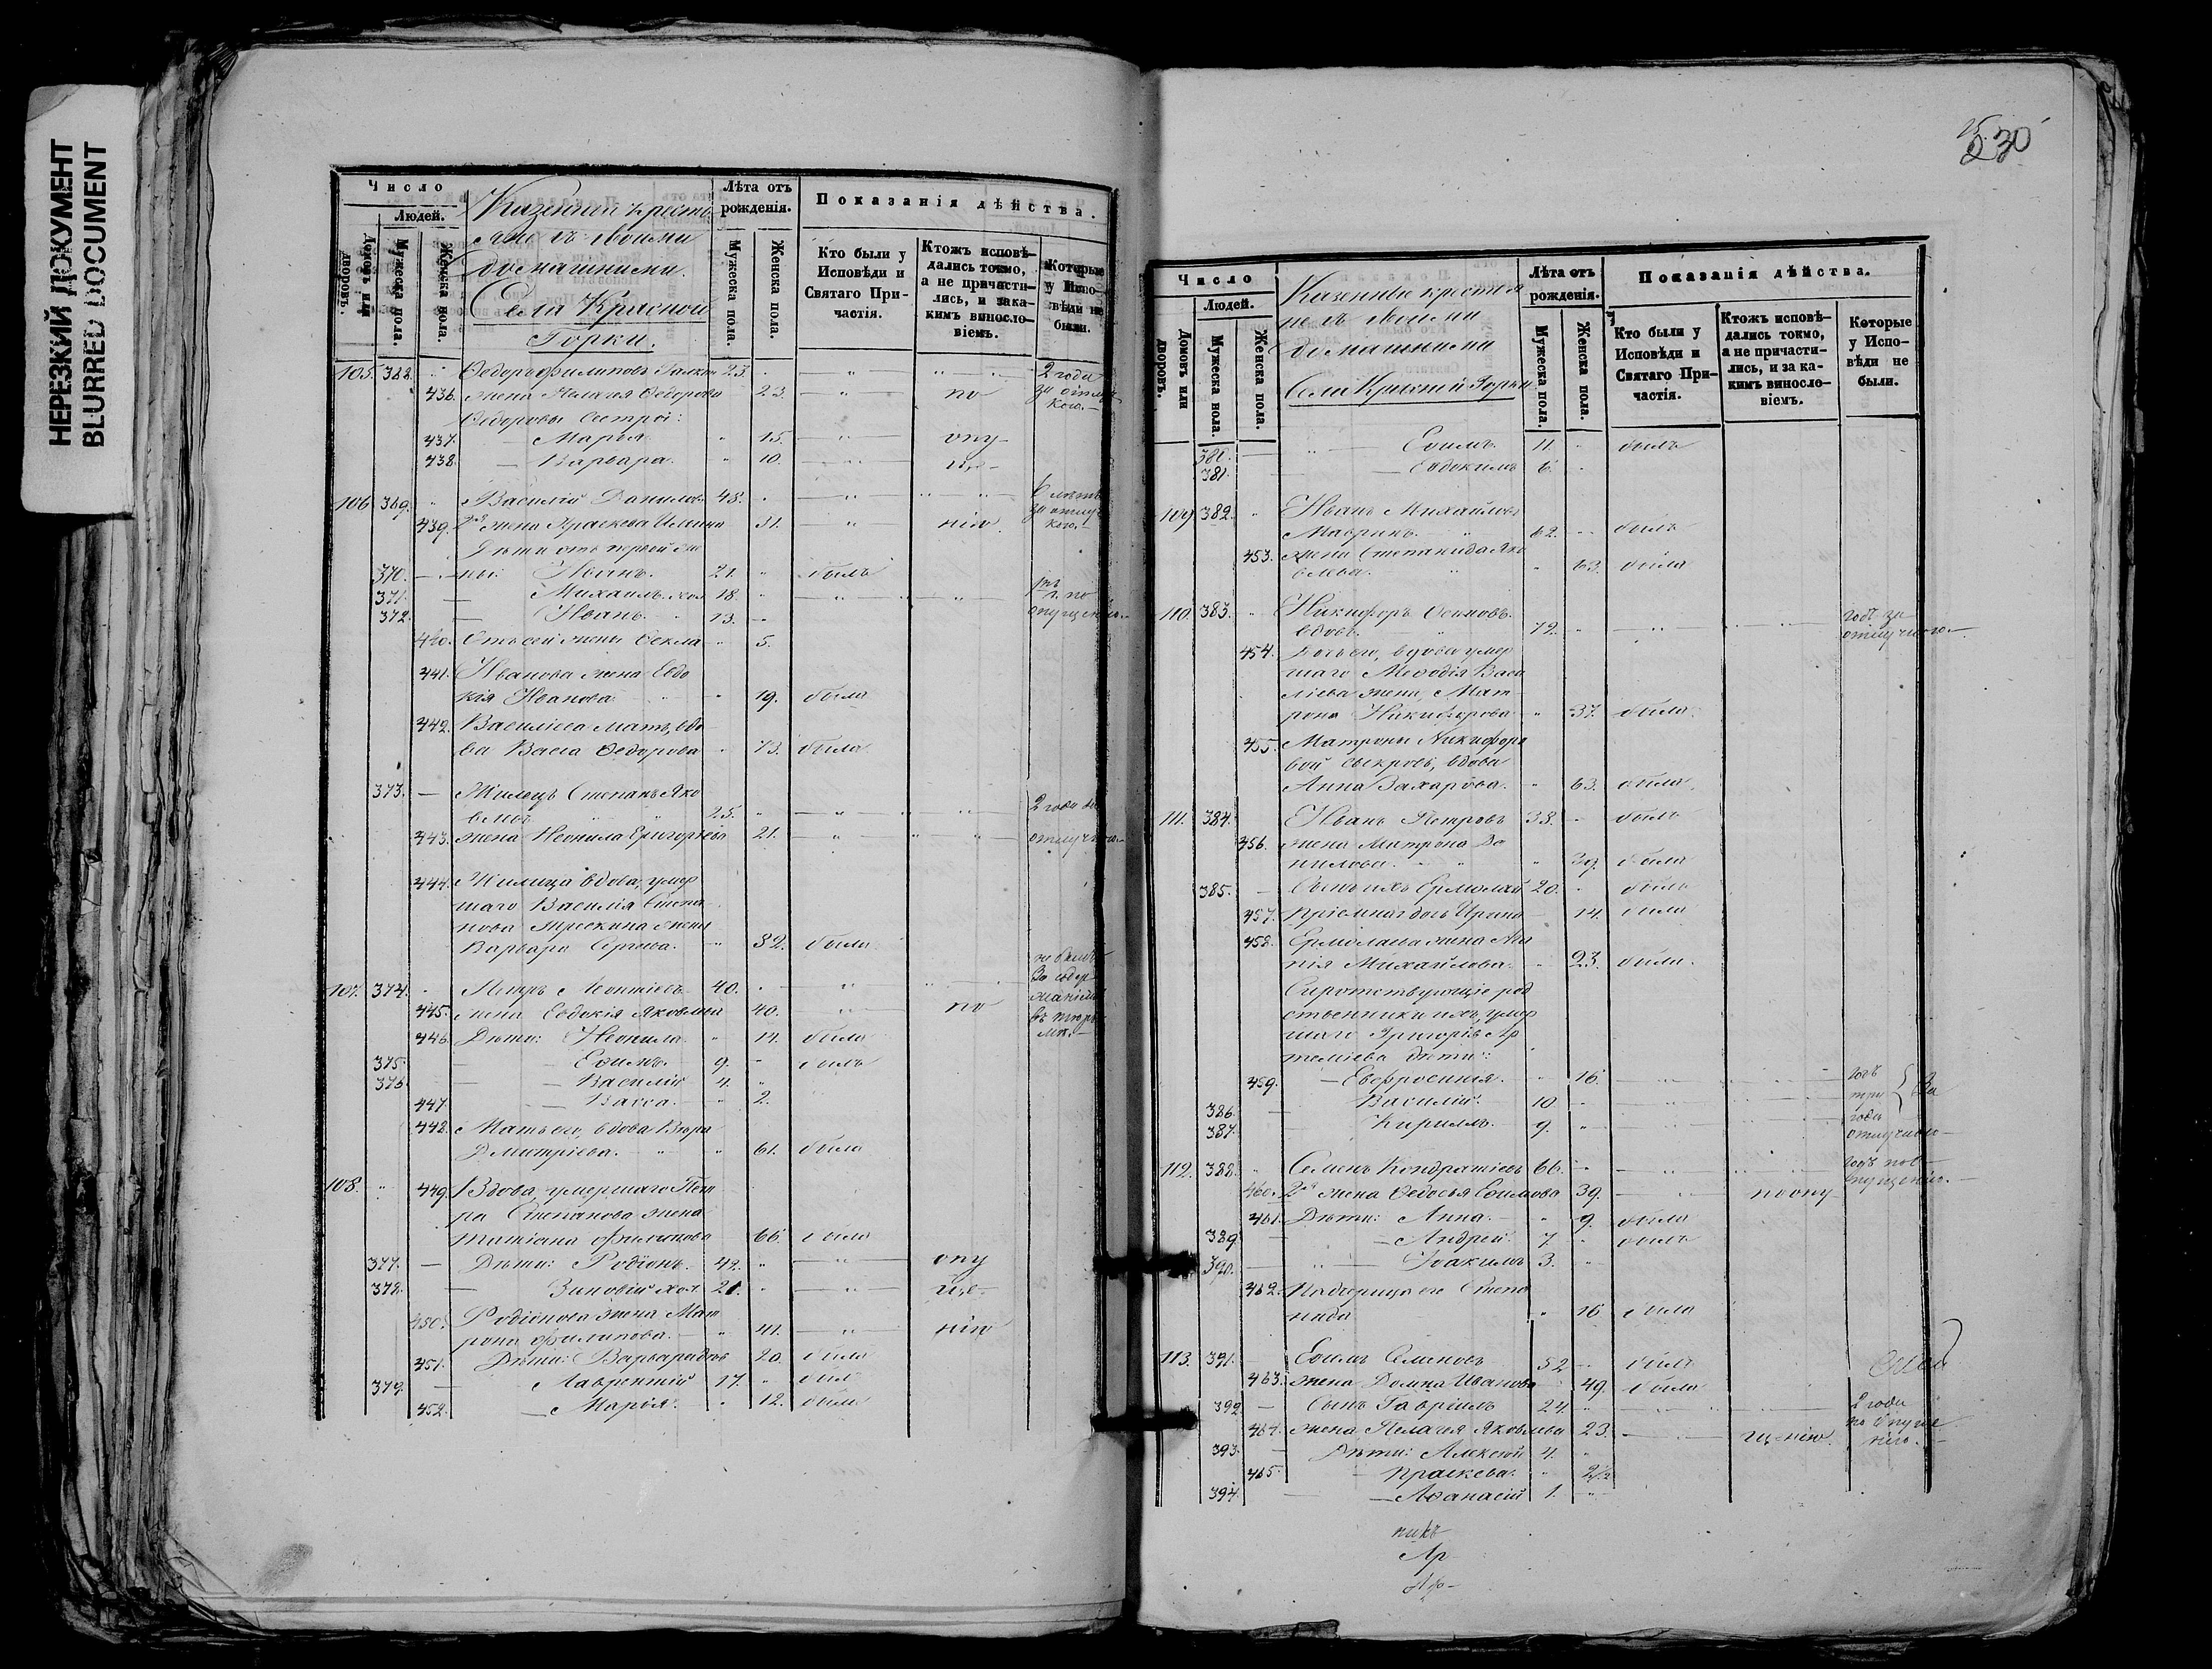 НЕРЕЗКИЙ ДОКУМЕНТ
BLURRED DOCUMENT
Число
Людей.
Домовъ или дворовъ.
Мужеска пола.
Женска пола.
Казенные крестья
не съ своими
домашними.
Села Красной
Горки.
Лѣта отъ рожденія.
Мужеска пола.
Женска пола.
Показанія дѣйства.
Кто были у Исповѣди и Святаго Причастія.
Ктожъ исповѣдались токмо, а не причастились, и за какимъ винословіемъ.
Которые у Исповѣди не были.
105. 368. Ѳедоръ Филиповъ 23. 2 года
436. жена Пелагея Ѳедорова 23. по за отлуч
Ѳедоровы сестры: кою.
437. Марья 15. опу
438. Варвара 10. ще
106. 369. Василій Даниловъ 48. 6 лѣтъ
439. 2я жена Праскева Ильина 31. нію за отлуч
Дѣти отъ первой же кою.
370. ны: Иванъ. 21. былъ
371. Михаилъ хол 18.
372. Иванъ. 13. опущенію
440. Отъ сей жены Ѳекла 5.
441. Иванова жена Евдо
кія Иванова 19. была
442. Василіева мать, вдо
ва Васса Ѳедорова 73. была
373. Жилецъ Степанъ Яко
влевъ 25. 2 года
443. жена Неонила Григорьева 21. отлучкою
444. Жилица вдова, умер
шаго Василія Степа
нова жена
Варвара 32. была
107. 374. Петръ Леонтіевъ 40. не былъ
445. жена Евдокія Яковлева 40. по за содер
446. Дѣти: Неонила 11. была жаніемъ
375. Ефимъ. 9. былъ въ тюрь
376. Василій 4. мѣ.
447. Васса. 2.
448. Мать его, вдова
Дмитріева. 61. была
108. 449. Вдова, умершаго Пет
ра Степанова жена
Татіана 66. была
377. Дѣти: Родіонъ. 42. опу
378. Зиновій хол. 21. ще
450. Родіонова жена Мат
рона Филипова. 41. нію
451. Дѣти: Варвара 20. была
379. Лаврентій 17. былъ
452. Марья. 12. была
230
Число
Людей.
Домовъ или дворовъ.
Мужеска пола.
Женска пола.
Казенные крестья
не съ своими
домашними
Села Красной Горки
Лѣта отъ рожденія.
Мужеска пола.
Женска пола.
Показанія дѣйства.
Кто были у Исповѣди и Святаго Причастія.
Ктожъ исповѣдались токмо, а не причастились, и за какимъ винословіемъ.
Которые у Исповѣди не были.
380. Ефимъ. 11. былъ
381. Евдокимъ 6.
109. 382. Иванъ Михайловъ
Мавринъ. 62. былъ
453. жена Степанида Яко
влева. 63. была
110. 383. Никифоръ Осиповъ.
вдовъ. 72. годъ за отлучкою.
454. Дочь его, вдова умер
шаго Меѳодія Васи
ліева жена, Мат
рона Никифорова 37. была.
455. Матроны Никифоро
вой свекровь, вдова
Анна Захарова. 63. была.
111. 384. Иванъ Петровъ 38. былъ
456. жена Матрона Да
нилова. 39. была
385. Сынъ ихъ Ермолай 20. былъ
457. Пріемная дочь Ирина 14. была
458. Ермолаева жена Ага
пія Михайлова. 23. была.
Сиротствующіе род
ственники ихъ, умер
шаго Григорія Ар
теміева дѣти:
459. Евфросинія. 16. годъ
386. Василій. 10 три за
387. Кириллъ. 9. года отлучкою
112. 388. Семенъ Кондратіевъ 66. годъ по о
460. 2я жена Ѳедосья Ефимова 39. по опу пущенію.
461. Дѣти: Анна. 9. была
389. Андрей. 7. былъ
390. Іоакимъ 3.
462. Падчерица его Степа
нида 16 была
113. 391. Ефимъ Семеновъ 52 былъ
463. жена Домна Иванова 49. была
392 Сынъ Гавріилъ 24. 2 года
464. жена Пелагея Яковлева 23. щенію. по опуще
393. Дѣти: Алексѣй 4. нію.
465. Праскева. 2½
394. Аѳанасій 1.